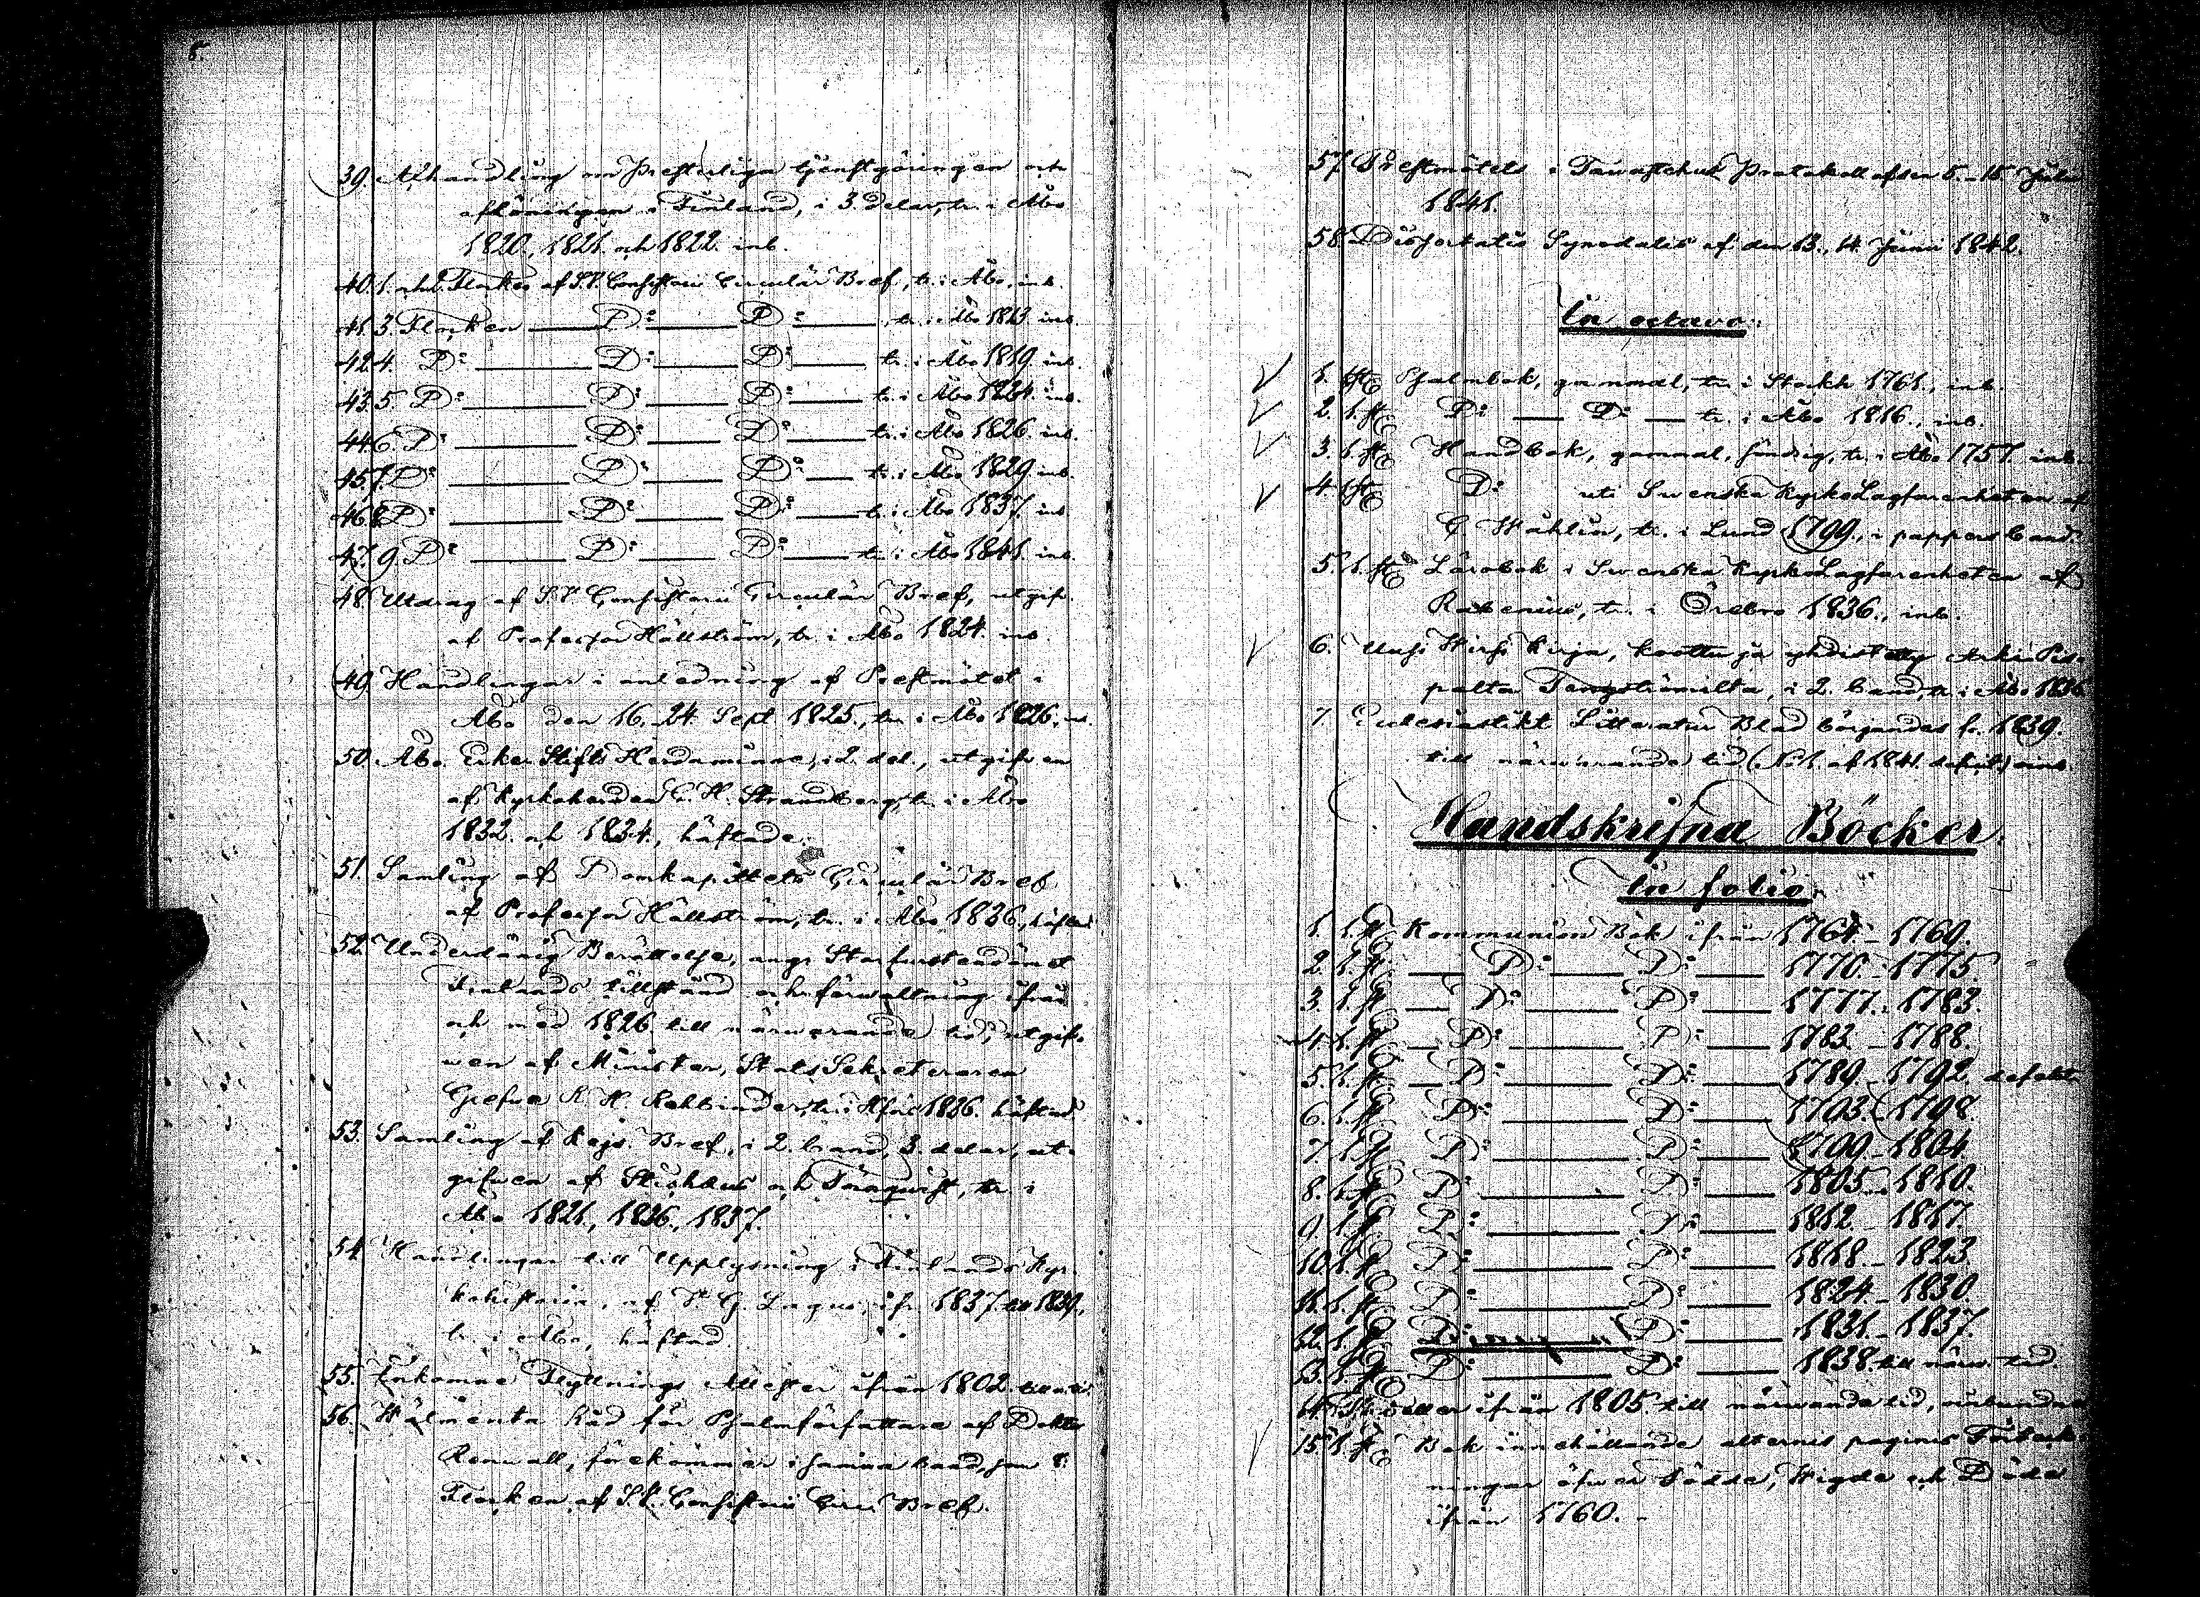 5.
39. Afhandling om Presterliga tjenstgöringen och
aflöningen i Finland, i 3. delar, tr. i Åbo
1820, 1821. och 1822. inb.
40. 1. och 2. Flocken af S.V. Consistorii Circulär Bref, tr. i Åbo, inb.
41. 3. Flocken — D:o — D:o — tr. i Åbo 1813. inb.
42. 4. D:o — D:o — D:o — tr. i Åbo 1819. inb.
43. 5. D:o — D:o — D:o — tr. i Åbo 1824. inb.
44. 6. D:o — D:o — D:o — tr. i Åbo 1826. inb.
45. 7. D:o — D:o — D:o — tr. i Åbo 1829 inb.
46. 8. D:o — D:o — D:o — tr. i Åbo 1837. inb
47. 9. D:o — D:o — D:o — tr. i Åbo 1841. inb.
48. Utdrag af S.V. Consistorii Circulär Bref, utgifv.
af Professor Hällström, tr. i Åbo 1824. inb
49. Handlingar i anledning af Prestmötet i
Åbo den 16.-24. Sept. 1825., tr. i Åbo 1826, inb.
50. Åbo Erke Stifts Herdaminne, i 2. del., utgifven
af Kyrkoherden C. H. Strandberg, tr. i Åbo
1832. och 1834., häftade.
51. Samling af Domkapitlets Circulär Bref
af Professor Hällström, tr. i Åbo 1836., häftad
52. Underdånig Berättelse, ang. Storfurstendömet
Finlands tillstånd och förwaltning ifrån
och med 1826 till närwarande tid, utgif-
wen af Minister, Stats Sekreteraren
Grefwe R. H. Rehbinder, tr. i Hfors 1836. häftad
53. Samling af Kejs. Bref, i 2. band, 3. delar, ut-
gifwen af Stichæus och Törnqwist, tr. i
Åbo 1821, 1836., 1837.
54. Handlingar till Upplysning i Finlands Kyr-
kohistoria, af W. G. Lagus, ifr. 1837. 1839.,
tr. i Åbo, häftad
55. Inkomne Flyttnings Attester ifrån 1802.
56. Wälmenta Råd för Psalmförfattare af Doktor
Renwall, förekommer i samma band, som 8.
Flocken af S.V. Consistorii Circ. Bref.
57. Prestmötets i Tawastehus Protokoll af den 5.-15 Julii
1841.
58. Dissertatio Synodalis af den 13., 14. Junii 1842.
In octavo:
1. 1. st. Psalmbok, gammal, tr. i Stockh. 1761., inb.
2. 1. st. D:o — D:o — tr. i Åbo 1816., inb.
3. 1. st. Handbok, gammal, söndrig, tr. i Åbo 1757. inb.
4. 1. st. D:o uti Swenska KyrkoLagfarenheten af
C. Wåhlin, tr. i Lund 1799., i pappersband
5. 1. st. Lärobok i Swenska KyrkoLagfarenheten af
Rabenius, tr. i Örebro 1836., inb.
6. Uusi Wirsi Kirja, koottu ja yhdistetty Arki Pis-
palta Tengströmilta, i 2. band, tr. i Åbo 1836
7. Ecclesiastikt Litteratur Blad börjandes fr. 1839.
till närwarande tid (N:o 1. af 1841. defekt)
Handskrifna Böcker.
In folio.
1. 1. st. Kommunion Bok ifrån 1764. - 1769.
2. 1. st. — D:o — D:o — 1770. - 1775.
3. 1. st. — D:o — D:o — 1777. - 1783.
4. 1. st. — D:o — D:o — 1783. - 1788.
5. 1. st. — D:o — D:o — 1789. - 1792. defekt
6. 1. st. D:o — D:o — 1793. - 1798.
7. 1. st. D:o — D:o — 1799. - 1804.
8. 1. st. D:o — D:o — 1805. - 1810.
9. 1. st. D:o — D:o — 1812. - 1817.
10. 1. st. D:o — D:o — 1818. - 1823.
11. 1. st. D:o — D:o — 1824. - 1830
12. 1. st. D:o — 1831. - 1837.
13. 1. st. D:o — D:o — 1838. till närw. tid
14. ifrån 1805. till närwarande tid, oinbundna
15. 1. st. Bok innehållande alternis paginis Förteck-
ningar öfwer Födde, Wigde och Döde
ifrån 1760. -